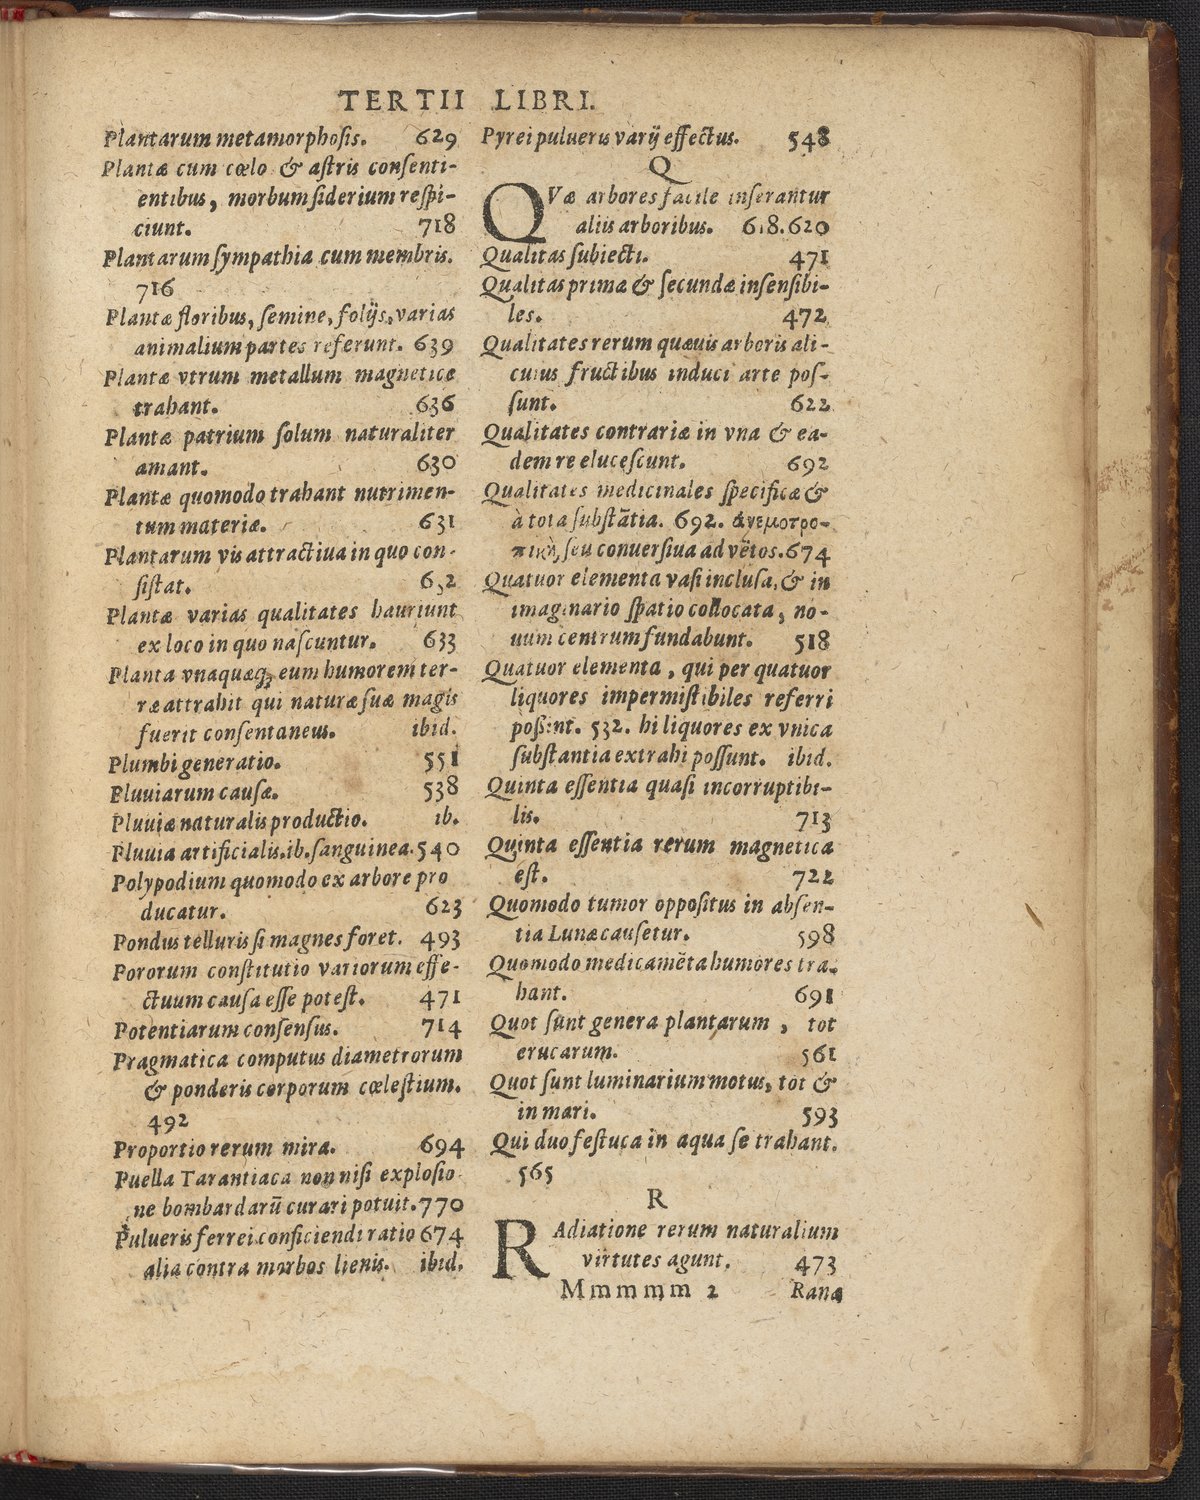 TERTII LIBRI.
Plantarum metamorphosis. 629
Plantæ cum cœlo & astris consenti-
entibus, morbum siderium respi-
ciunt. 718
Plantarum sympathia cum membris.
716
Plantæ floribus, semine, folijs, varias
animalium partes referunt. 639
Plantæ vtrum metallum magneticæ
trahant. 636
Plantæ patrium solum naturaliter
amant. 630
Plantæ quomodo trahant nutrimen-
tum materiæ. 631
Plantarum vis attractiua in quo con-
sistat.
Plantæ varias qualitates hauriunt
ex loco in quo nascuntur. 633
Planta vnaquæq; eum humorem ter-
ræ attrahit qui naturæ suæ magis
fuerit consentaneus. ibid.
Plumbi generatio. 551
Pluuiarum causæ. 538
Pluuiæ naturalis productio. ib.
Pluuia artificialis. ib. sanguinea. 540
Polypodium quomodo ex arbore pro
ducatur. 623
Pondus telluris si magnes foret. 493
Pororum constitutio variorum effe-
ctuum causa esse potest. 471
Potentiarum consensus. 714
Pragmatica computus diametrorum
& ponderis corporum cœlestium.
492
Proportio rerum mira. 694
Puella Tarantiaca non nisi explosio
ne bombardarū curari potuit. 770
Pulueris ferrei conficiendi ratio 674
alia contra morbos lienis. ibid.
Pyrei pulueris varij effectus. 548
Q
QVæ arbores facile inserantur
aliis arboribus. 618. 620
Qualitas subiecti. 471
Qualitas primæ & secundæ insensibi-
les. 472
Qualitates rerum quæuis arboris ali-
cuius fructibus induci arte pos-
sunt. 622
Qualitates contrariæ in vna & ea-
dem re elucescunt. 692
Qualitates medicinales specificæ &
à tota substātia. 692. ἀνεμοτρο-
πικὴ, seu conuersiua ad vētos. 674
Quatuor elementa vasi inclusa, & in
imaginario spatio collocata, no-
uum centrum fundabunt. 518
Quatuor elementa, qui per quatuor
liquores impermistibiles referri
possint. 532. hi liquores ex vnica
substantia extrahi possunt. ibid.
Quinta essentia quasi incorruptibi-
lis. 713
Quinta essentia rerum magnetica
est. 722
Quomodo tumor oppositus in absen-
tia Lunæ causetur. 598
Quomodo medicamēta humores tra-
hant. 691
Quot sunt genera plantarum, tot
erucarum. 561
Quot sunt luminarium motus, tot &
in mari. 593
Qui duo festuca in aqua se trahant.
565
R
RAdiatione rerum naturalium
virtutes agunt. 473
Mmmmm 2 Rana